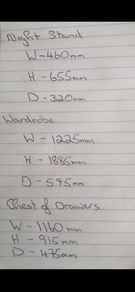 Night Stand
W - 460mm
H - 655mm
D - 320mm
Wardrobe
W - 1225mm
H - 1885mm
D - 595mm
Chest of Drawers
W - 1160mm
H - 915mm
D - 475mm